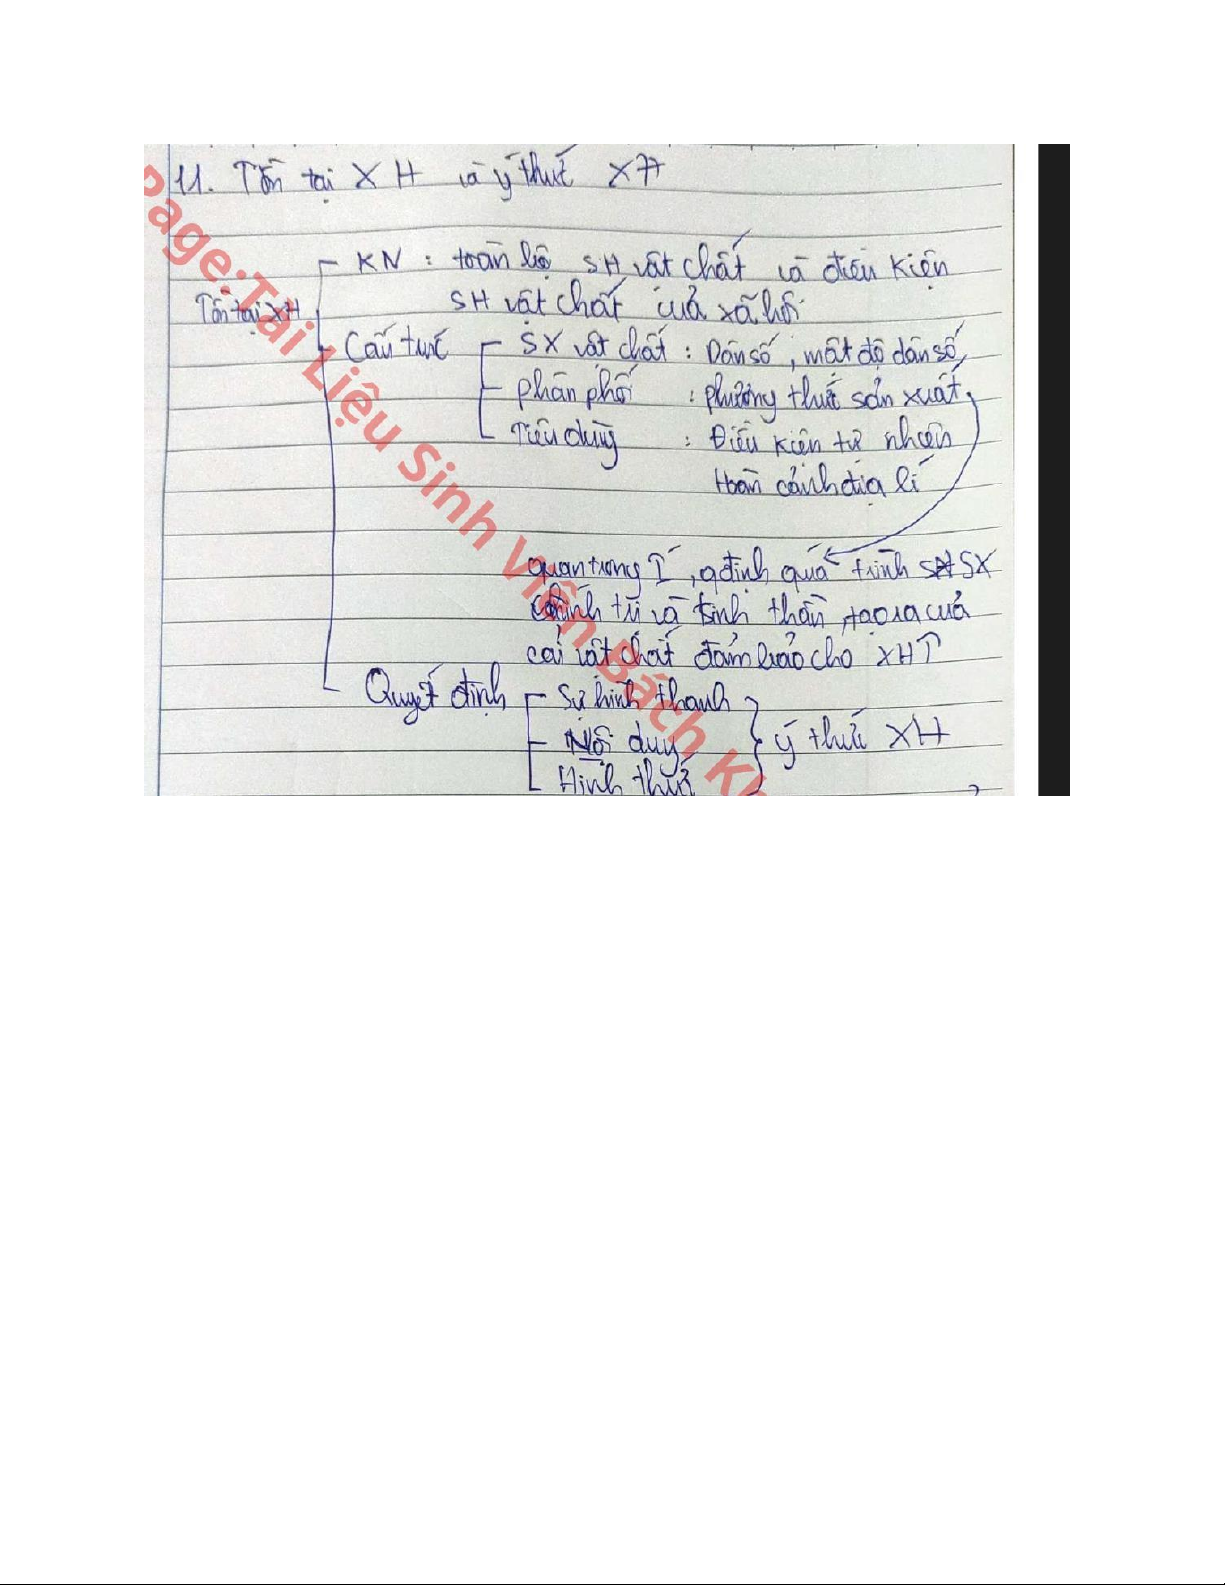 11. Tồn tại XH và ý thức XH
KN : toàn bộ SH vật chất và điều kiện
Tồn tại XH
SH vật chất của xã hội
Cấu trúc
SX vật chất : Dân số, mật độ dân số,
phân phối : phương thức sản xuất,
Tiêu dùng : Điều kiện tự nhiên
Hoàn cảnh địa lí
quan trọng I, qđịnh quá trình SX
chính trị và tinh thần, tạo ra của
cải vật chất đảm bảo cho XHT
Quyết định
Sự hình thành
Nội duy
Hình thức
ý thức XH
Page:Tài Liệu Sinh Viên Bách Kh